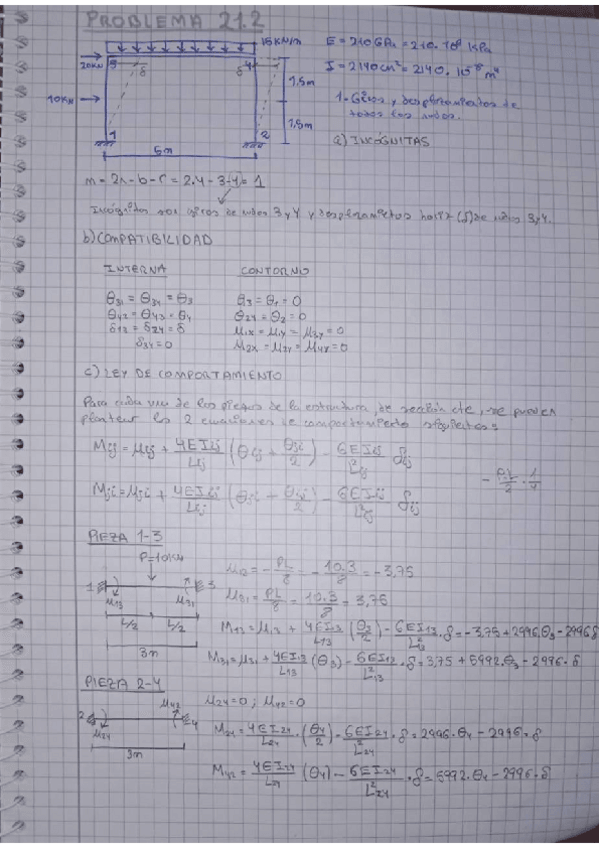 PROBLEMA 21.2
15 KN/m
20KN
3 δ δ 4
1,5m
10KN
1,5m
1 2
5m
E = 210GPa = 210·10⁶ kPa
I = 2140cm⁴ = 2140·10⁻⁸ m⁴
1- Giros y desplazamientos de
todos los nudos.
a) INCÓGNITAS
m = 2n - b - r = 2·4 - 3 - 4 = 1
Incógnitas son giros de nudos 3 y 4 y desplazamientos horiz (δ) de nudos 3 y 4.
b) COMPATIBILIDAD
INTERNA
θ31 = θ34 = θ3
θ42 = θ43 = θ4
δ13 = δ24 = δ
δ34 = 0
CONTORNO
θ13 = θ1 = 0
θ24 = θ2 = 0
μ1x = μ1y = μ3y = 0
μ2x = μ2y = μ4y = 0
c) LEY DE COMPORTAMIENTO
Para cada una de las piezas de la estructura, de sección cte, se pueden
plantear las 2 ecuaciones de comportamiento siguientes:
Mij = μij + 4EIij/Lij (θij + θji/2) - 6EIij/L²ij δij
Mji = μji + 4EIij/Lij (θji + θij/2) - 6EIij/L²ij δij
PIEZA 1-3
P=10KN
1 3
μ13 μ31
L/2 L/2
3m
μ13 = - PL/8 = - 10·3/8 = -3,75
μ31 = PL/8 = 10·3/8 = 3,75
M13 = μ13 + 4EI13/L13 (θ3/2) - 6EI13/L²13 · δ = -3,75 + 2996·θ3 - 2996δ
M31 = μ31 + 4EI13/L13 (θ3) - 6EI13/L²13 · δ = 3,75 + 5992·θ3 - 2996·δ
PIEZA 2-4
μ42
2 4
μ24
3m
μ24 = 0 ; μ42 = 0
M24 = 4EI24/L24 · (θ4/2) - 6EI24/L²24 · δ = 2996·θ4 - 2996·δ
M42 = 4EI24/L24 (θ4) - 6EI24/L²24 · δ = 5992·θ4 - 2996·δ